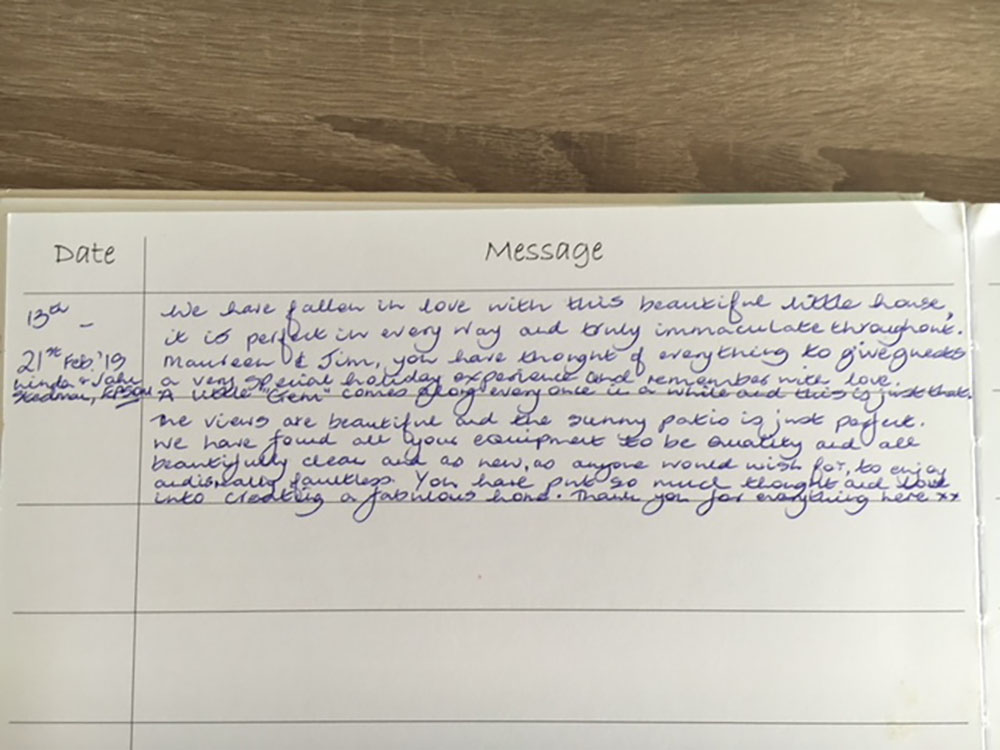 Date Message
13th –
We have fallen in love with this beautiful little house,
it is perfect in every way and truly immaculate throughout.
21st Feb. '19
Maureen & Jim, you have thought of everything to give guests
Linda & John
a very special holiday experience and remember with love.
Stedman, EPSOM
A little "Gem" comes along every once in a while and this is just that.
The views are beautiful and the sunny patio is just perfect.
We have found all your equipment to be quality and all
beautifully clean and as new, as anyone would wish for, to enjoy
and is really faultless. You have put so much thought and love
into creating a fabulous home. Thank you for everything here xx